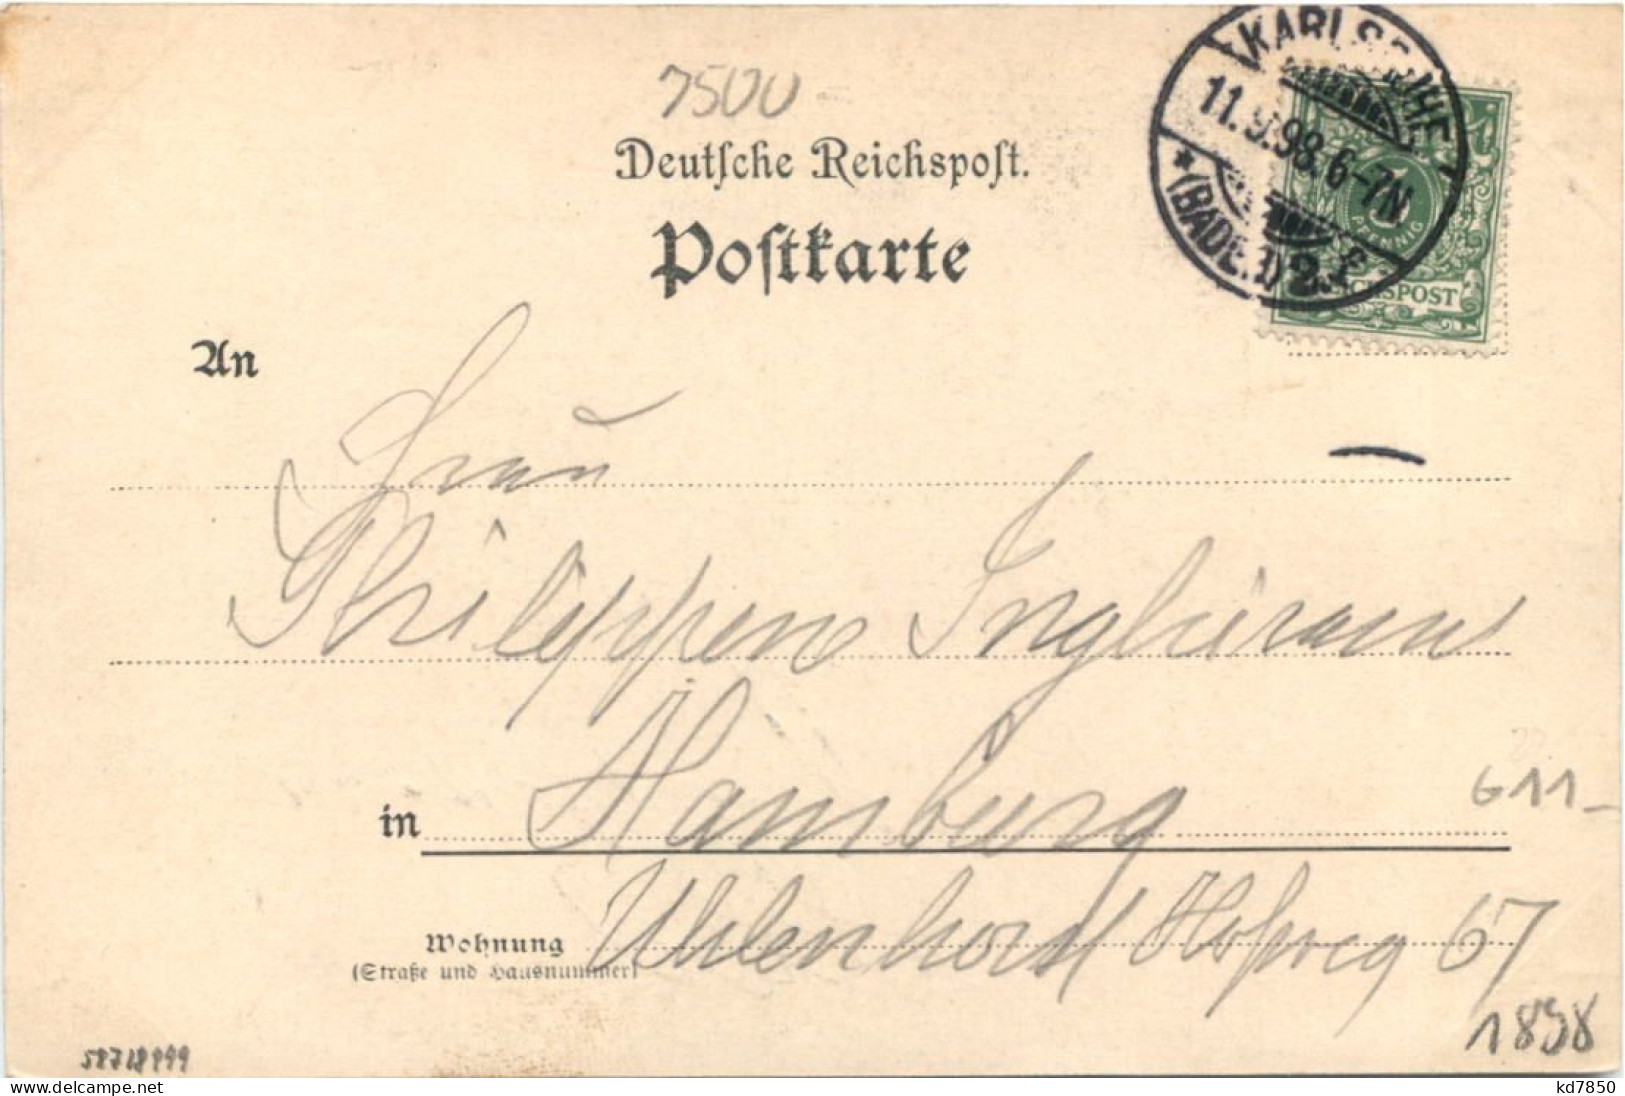 7500
Deutsche Reichspost.
Postkarte
KARLSRUHE
11.9.98. 6-7N
* (BADEN) 2.
5
PFENNIG
REICHSPOST
An
Frau
Philippine
in Hamburg
G11-
Wohnung Uhlenhorst Hofweg 67
(Straße und Hausnummer)
1898
58718999
delcampe.net
kd7850